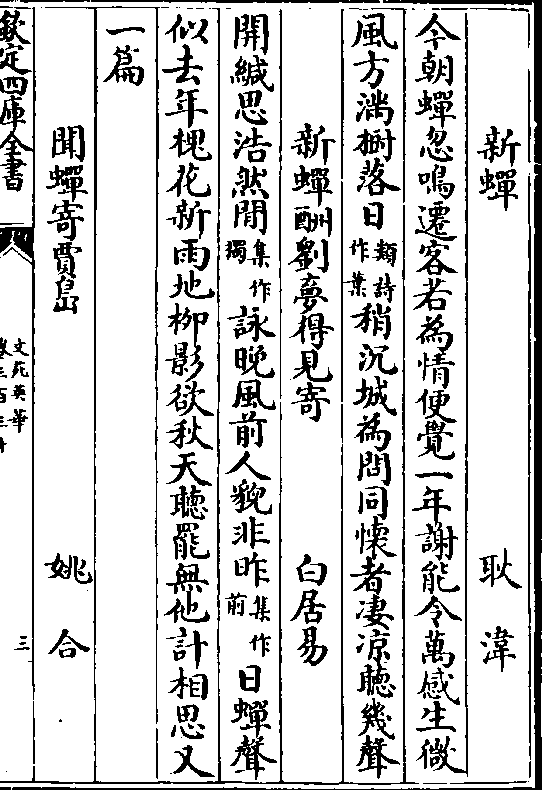 新蟬　耿湋
今朝蟬忽鳴遷客若為情便覺一年謝能令萬感生微
風方滿樹落日類詩作葉稍沉城為問同懷者凄凉聽幾聲
新蟬酬劉夢得見寄　白居易
開緘思浩然閒集作獨詠晚風前人貌非昨集作前日蟬聲
似去年槐花新雨地柳影欲秋天聽罷無他計相思又
一篇
聞蟬寄賈島　姚合
欽定四庫全書
文苑英華
三